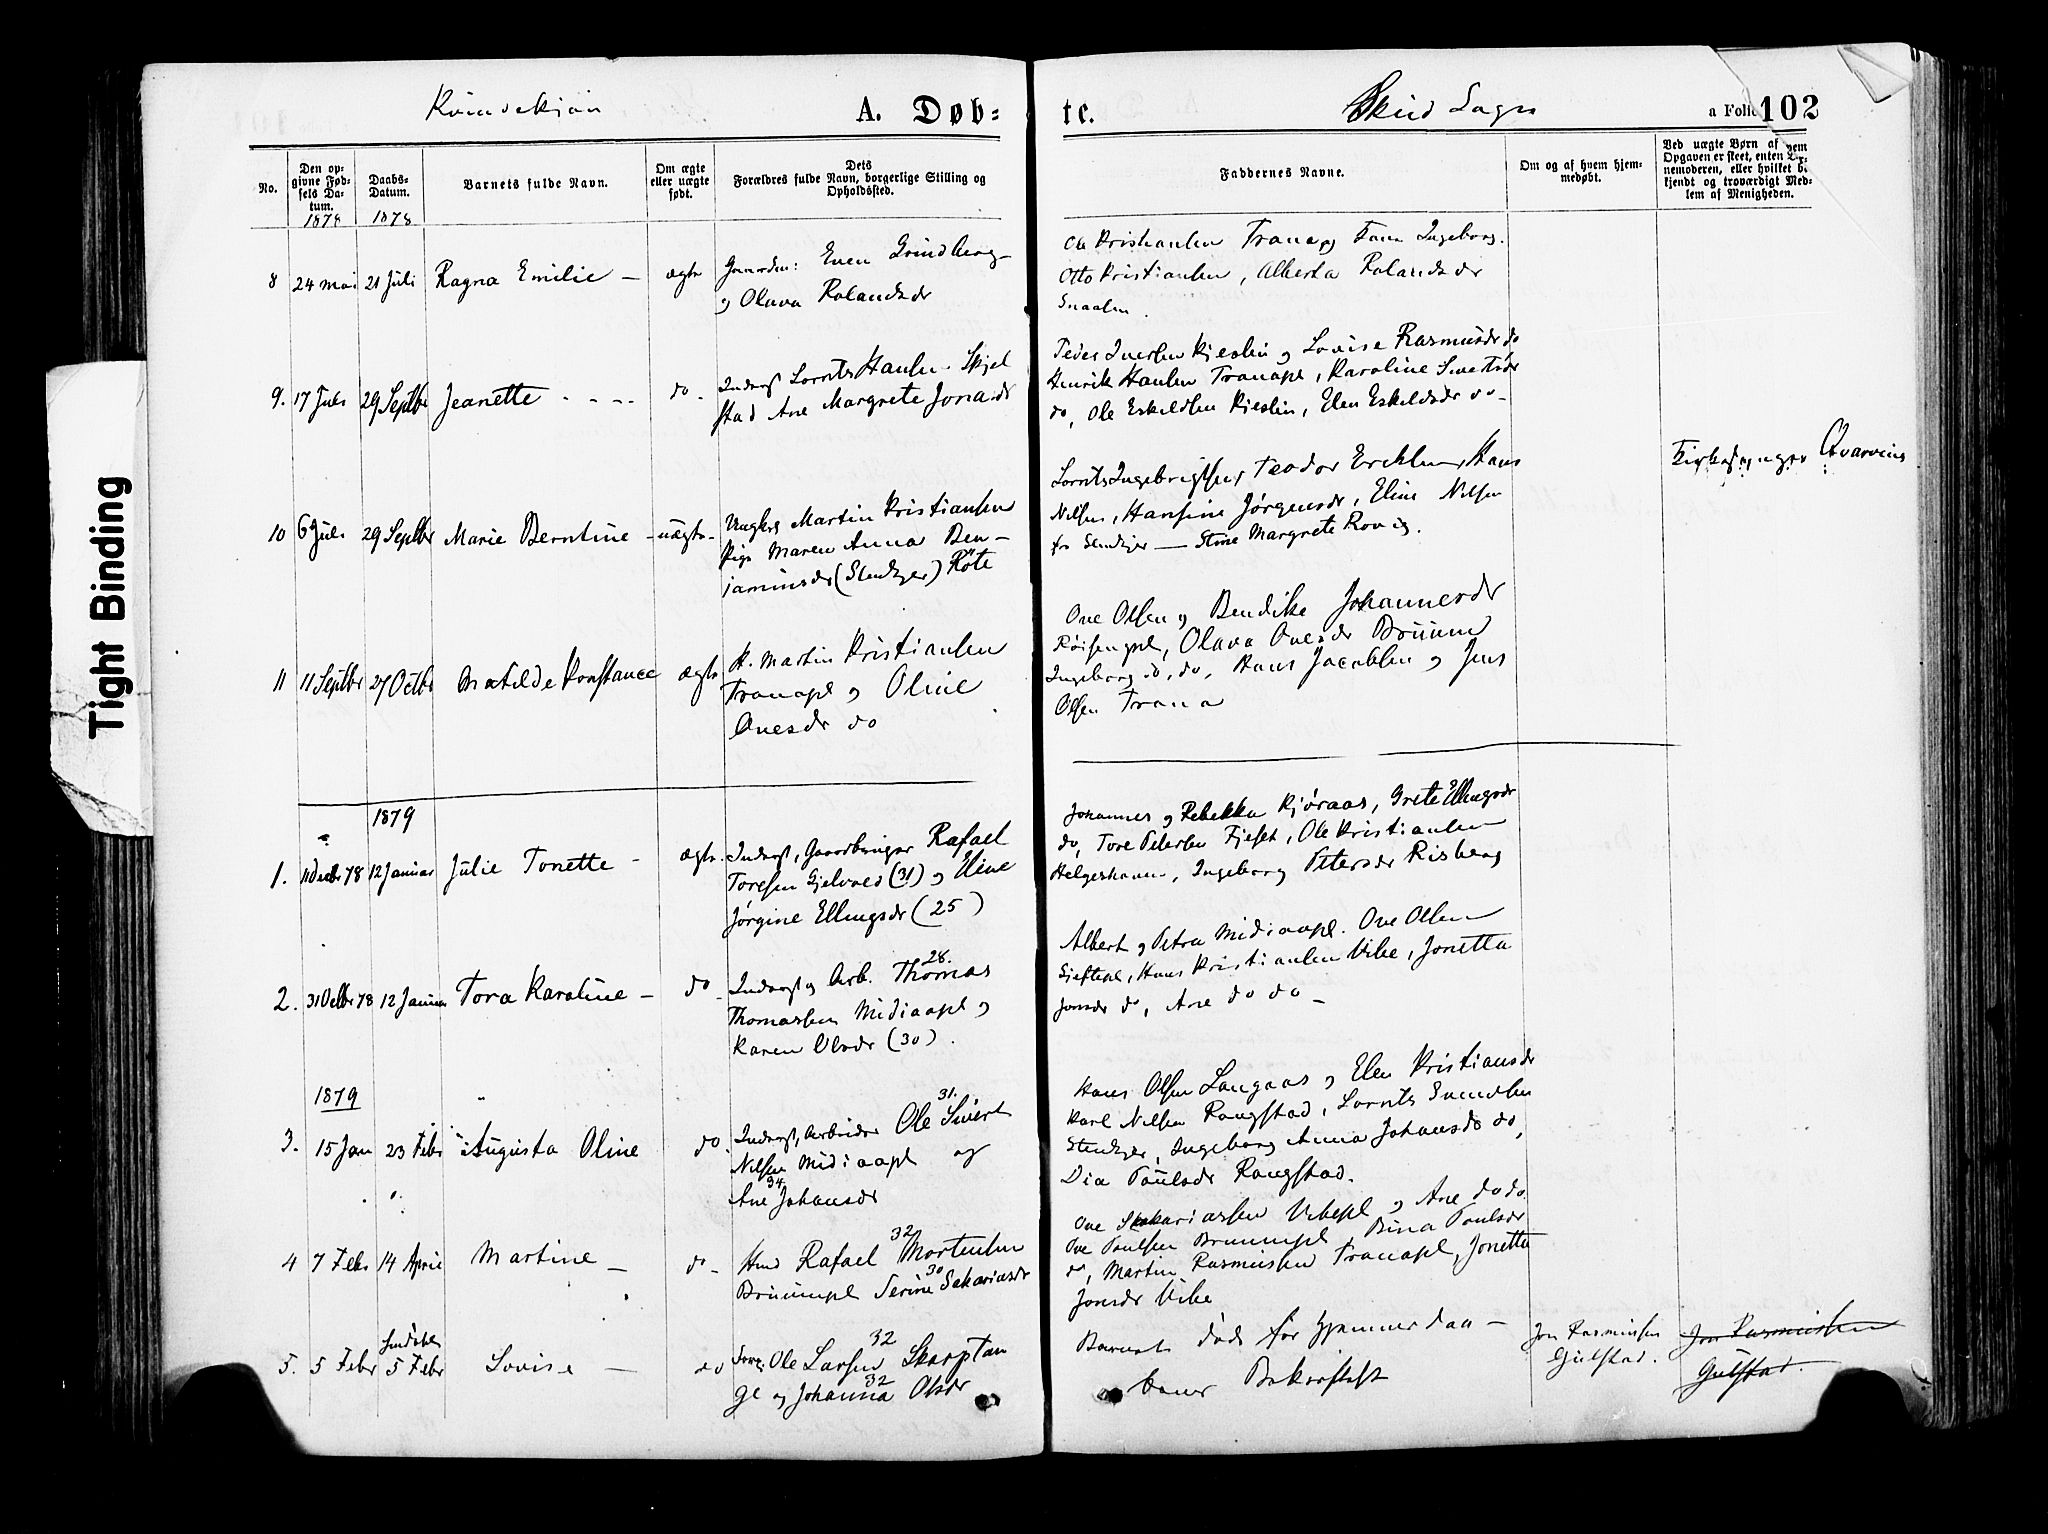 Kvindekjøn
A. Døb=
te.
Skei Sogn
a Folio 102
No.
Den op-
givne Fød-
sels Da-
tum.
Daabs-
Datum.
Barnets fulde Navn.
Om ægte
eller uægte
født.
Dets
Forældres fulde Navn, borgerlige Stilling og
Opholdssted.
Faddernes Navne.
Om og af hvem hjem-
medøbt.
Ved uægte Børn af hvem
Opgaven er skeet, enten Der-
nemoderen, eller hvilket be-
kjendt og troværdigt Med-
lem af Menigheden.
1878
1878
8 24 Mai 21 Juli Ragna Emilie — ægte
Gaardm: Even Grindberg
og Olava Rolandsdr
Ole Kristiansen Trana og Fam Ingeborg.
Otto Kristiansen, Alberta Rolandsdr
Snaasen
9. 17 Juli 29 Septbr Jeanette - - - do -
Inderst Lornts Hansen Skjel
stad Ane Margrete Jonasdr
Peder Iversen Kjeslin og Lovise Rasmusdr do
Henrik Hansen Tranapl, Karoline Sivertsdr
do, Ole Eskildsen Kjeslin, Elen Eskildsdr do -
10 6 Juli 29 Septbr Marie Berntine - uægte -
Ungkrl Martin Kristiansen
Pige Maren Anna Ben -
jaminsdr (Stenkjer) Røte
Lornts Ingebrigtsen, Teodor Hans
Nilsen, Hansine Jørgensdr, Eline Nilsen
fra Stenkjer — Stine Margrete Rovig.
Kirkesanger Qvarving
11 11 Septbr 27 Octbr Matilde Konstance ægte
H. Martin Kristiansen
Tranapl og Oline
Ovesdr do
Ove Olsen og Bendike Johannesdr
Røisengpl, Olava Ovesdr Bruum
Ingeborg do, do, Hans Jacobsen og Jens
Olsen Trana
1879
1. 11 Decbr 78 12 Januar Julie Tonette - ægte.
Inderst, Gaardbruger Rafael
Toresen Gjelvold (31) og Eline
Jørgine Ellingsdr (25)
Johannes og Rebekka Kjøraas, Grete Ellingsdr
do, Tore Petersen Fjeset, Ole Kristiansen
Helgeshaun, Ingeborg Petersdr Risberg
2. 31 Octbr 78 12 Januar Tora Karoline - do -
28.
Inderst og Arb. Thomas
Thomassen Midiaapl og
Karen Olsdr (30).
Albert og Petra Midiaapl. Ove Olsen
Gjeftepl, Hans Kristiansen Vibe, Jonetta
Jonsdr do, Ane do do -
1879
3. 15 Jan 23 Febr Augusta Oline do -
31.
Inderst, Arbeider Ole Sivert
Nilsen Midiaapl og
34
Ane Johansdr
Hans Olsen Langaas og Elen Kristiansdr
Karl Nilsen Rangstad, Lornts Svendsen
Stenkjer, Ingeborg Anna Johansdr do,
Dia Paulsdr Rangstad.
4 7 Febr 14 April Martine — do -
32
Hmd Rafael Mortensen
30
Bruumpl Serine Sakariasdr
Ove Sakariassen Vibepl og Ane do do.
Ove Paulsen Bruumpl, Bina Paulsdr
do, Martin Rasmussen Tranapl, Jonetta
Jonsdr Vibe
5. 5 Febr 5 Febr Lovise — do
32
Ole Larsen Skarptan
32
ge og Johanna Olsdr
Barnet døde før Hjemmedaa -
bens Bekræftelse
Jon Rasmussen
Gulstad.
Jon Rasmussen
Gulstad.
Tight Binding